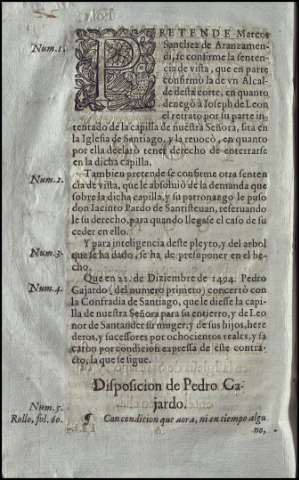 Num. 1.
PRETENDE Marcos
Sanchez de Aranzamen-
di, se confirme la senten-
cia de vista, que en parte
confirmò la de vn Alcal-
de desta corte, en quanto
denegò à Ioseph de Leon
el retrato por su parte in-
tentado de la capilla de nuestra Señora, sita en
la Iglesia de Santiago, y la reuocò, en quanto
por ella declarò tener derecho de enterrarse
en la dicha capilla.
Num. 2.
Tambien pretende se confirme otra senten
cia de vista, que le absoluiò de la demanda que
sobre la dicha capilla, y su patronazgo le puso
don Iacinto Pardo de Santisteuan, reseruando
le su derecho, para quando llegasse el caso de su
ceder en ello.
Num. 3.
Y para inteligencia deste pleyto, y del arbol
que se ha dado, se ha de presuponer en el he-
cho.
Num. 4.
Que en 21. de Diziembre de 1494. Pedro
Gajardo (del numero primero) concertò con
la Confradia de Santiago, que le diesse la capi-
lla de nuestra Señora para su entierro, y de Leo
nor de Santander su muger, y de sus hijos, here
deros, y sucessores por ochocientos reales, y sa
carbo por condicion expressa de este contra-
cto, la que se sigue.
Disposicion de Pedro Ga-
jardo.
Num. 5.
Rollo, fol. 60.
¶ Con condicion que aora, ni en tiempo algu
no,